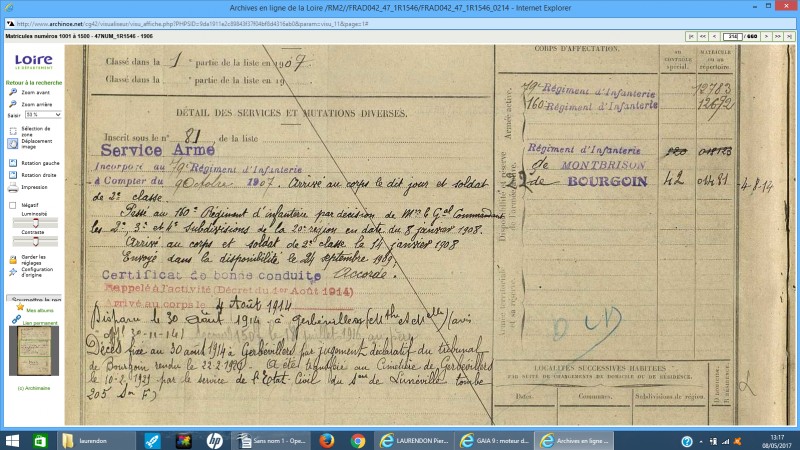 Archives en ligne de la Loire /RM2//FRAD042_47_1R1546/FRAD042_47_1R1546_0214 - Internet Explorer
Matricules numéros 1001 à 1500 - 47NUM_1R1546 - 1906
214 / 660
Loire
LE DÉPARTEMENT
Retour à la recherche
Zoom avant
Zoom arrière
Saisir 53 %
Sélection de zone
Déplacement image
Rotation gauche
Rotation droite
Impression
Négatif
Luminosité
Contraste
Garder les réglages
Configuration d'origine
Mes albums
Lien permanent
(c) Archimaine
Classé dans la 1 partie de la liste en 1907
Classé dans la partie de la liste en 19
DÉTAIL DES SERVICES ET MUTATIONS DIVERSES.
Inscrit sous le n° 81 de la liste
Service Armé
Incorporé au Régiment d'Infanterie
à Compter du 9 octobre 1907. Arrivé au corps le dit jour et soldat
de 2e classe.
Passé au 160e Régiment d'infanterie par décision de Mr le Gal Commandant
les 2e, 3e et 4e Subdivisions de la 20e région en date du 8 janvier 1908.
Arrivé au corps et soldat de 2e classe le 14 janvier 1908
Envoyé dans la disponibilité le 24 septembre 1909
Certificat de bonne conduite Accordé.
Rappelé à l'activité (Décret du 1er Août 1914)
Arrivé au corps le 4 Août 1914
Disparu le 30 août 1914 à Gerbéviller (Mthe et Mlle) (avis
Décès fixé au 30 août 1914 à Gerbéviller par jugement déclaratif du tribunal
de Bourgoin rendu le 22.2.1921. A été transféré au Cimetière de Gerbéviller
le 10.2.1921 par le service de l'Etat Civil du Sect de Lunéville tombe
205
CORPS D'AFFECTATION.
Armée active.
Régiment d'Infanterie 12783
160 Régiment d'Infanterie 12672
Disponibilité et réserve de l'armée active.
Régiment d'Infanterie
de MONTBRISON
de BOURGOIN 42 01481 4-8-14
Armée territoriale et sa réserve.
LOCALITÉS SUCCESSIVES HABITÉES
PAR SUITE DE CHANGEMENTS DE DOMICILE OU DE RÉSIDENCE.
Dates. Communes. Subdivisions de région
laurendon
Sans nom 1 - Ope...
LAURENDON Pier...
GAIA 9 : moteur d...
Archives en ligne ...
13:17
08/05/2017